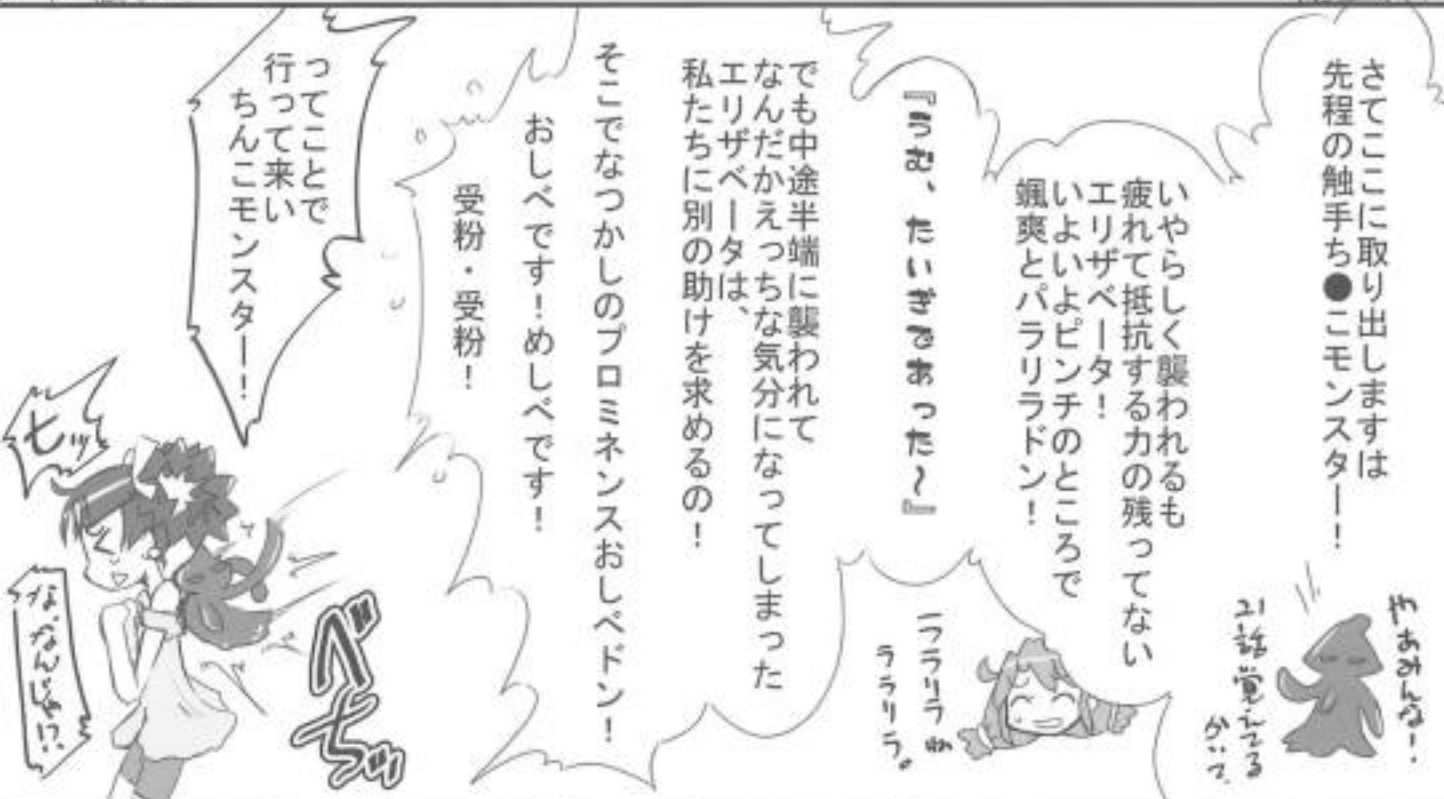 さてここに取り出しますは
先程の触手ち●こモンスター！
やあみんな！
21話覚えてる
かい？
いやらしく襲われるも
疲れて抵抗する力の残ってない
エリザベータ！
いよいよピンチのところで
颯爽とパラリラドン！
『うむ、たいぎであった〜』
ララリラ
でも中途半端に襲われて
なんだかえっちな気分になってしまった
エリザベータは、
私たちに別の助けを求めるの！
そこでなつかしのプロミネンスおしべドン！
おしべです！めしべです！
受粉・受粉！
ってことで
行って来い
ちんこモンスターー！
べちッ
ヒッ
な、なんじゃ!?